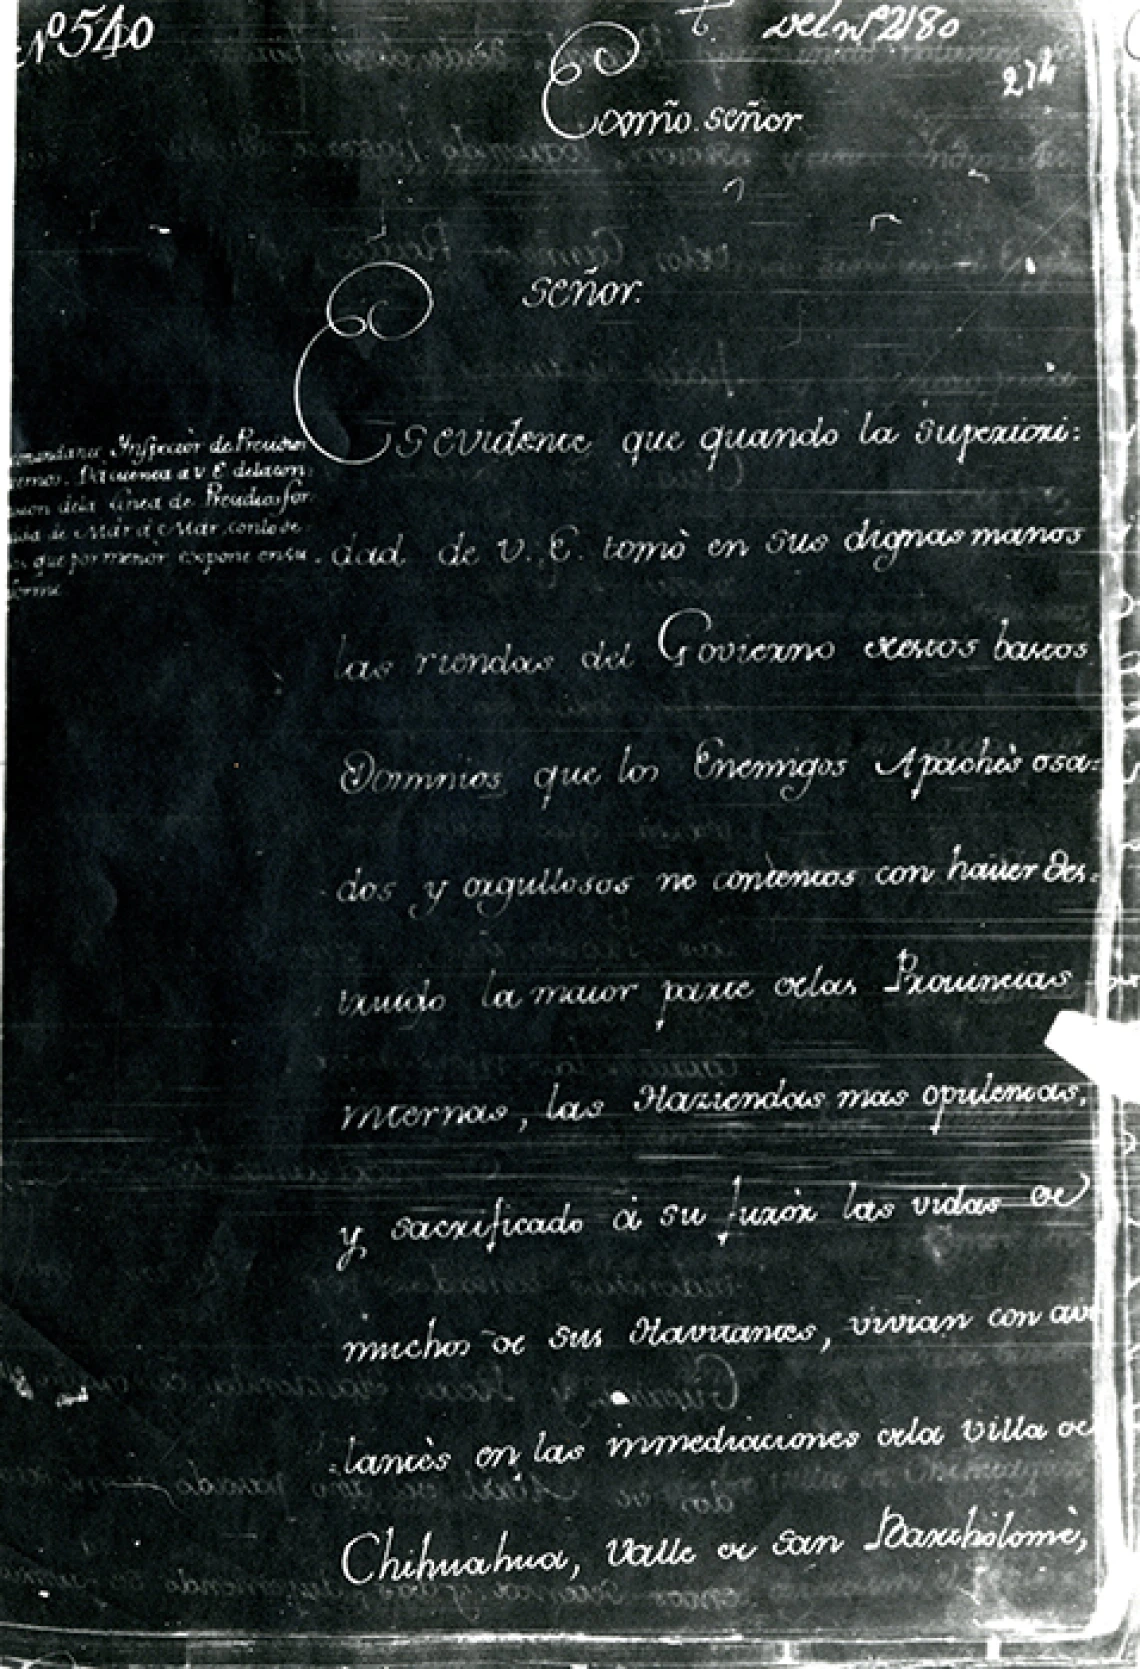 Nº 540
t. del nº 2180
274
Exmño. señor
señor.
Es evidente que quando la superiori:
dad de V. E. tomò en sus dignas manos
las riendas del Govierno destos bastos
Dominios que los Enemigos Apachès osa:
dos y orgullosos no contentos con haver des:
truido la maior parte delas Provincias
internas, las Haziendas mas opulentas,
y sacrificado à su furòr las vidas de
muchos de sus Havitantes, vivian con avi
lantès en las immediaciones dela Villa de
Chihuahua, Valle de San Bartholomè,
Inspector de Presidios
Dà cuenta à V E. dela
dela linea de Presidios for
de Mar à Mar, conlo de
que por menor expone en su